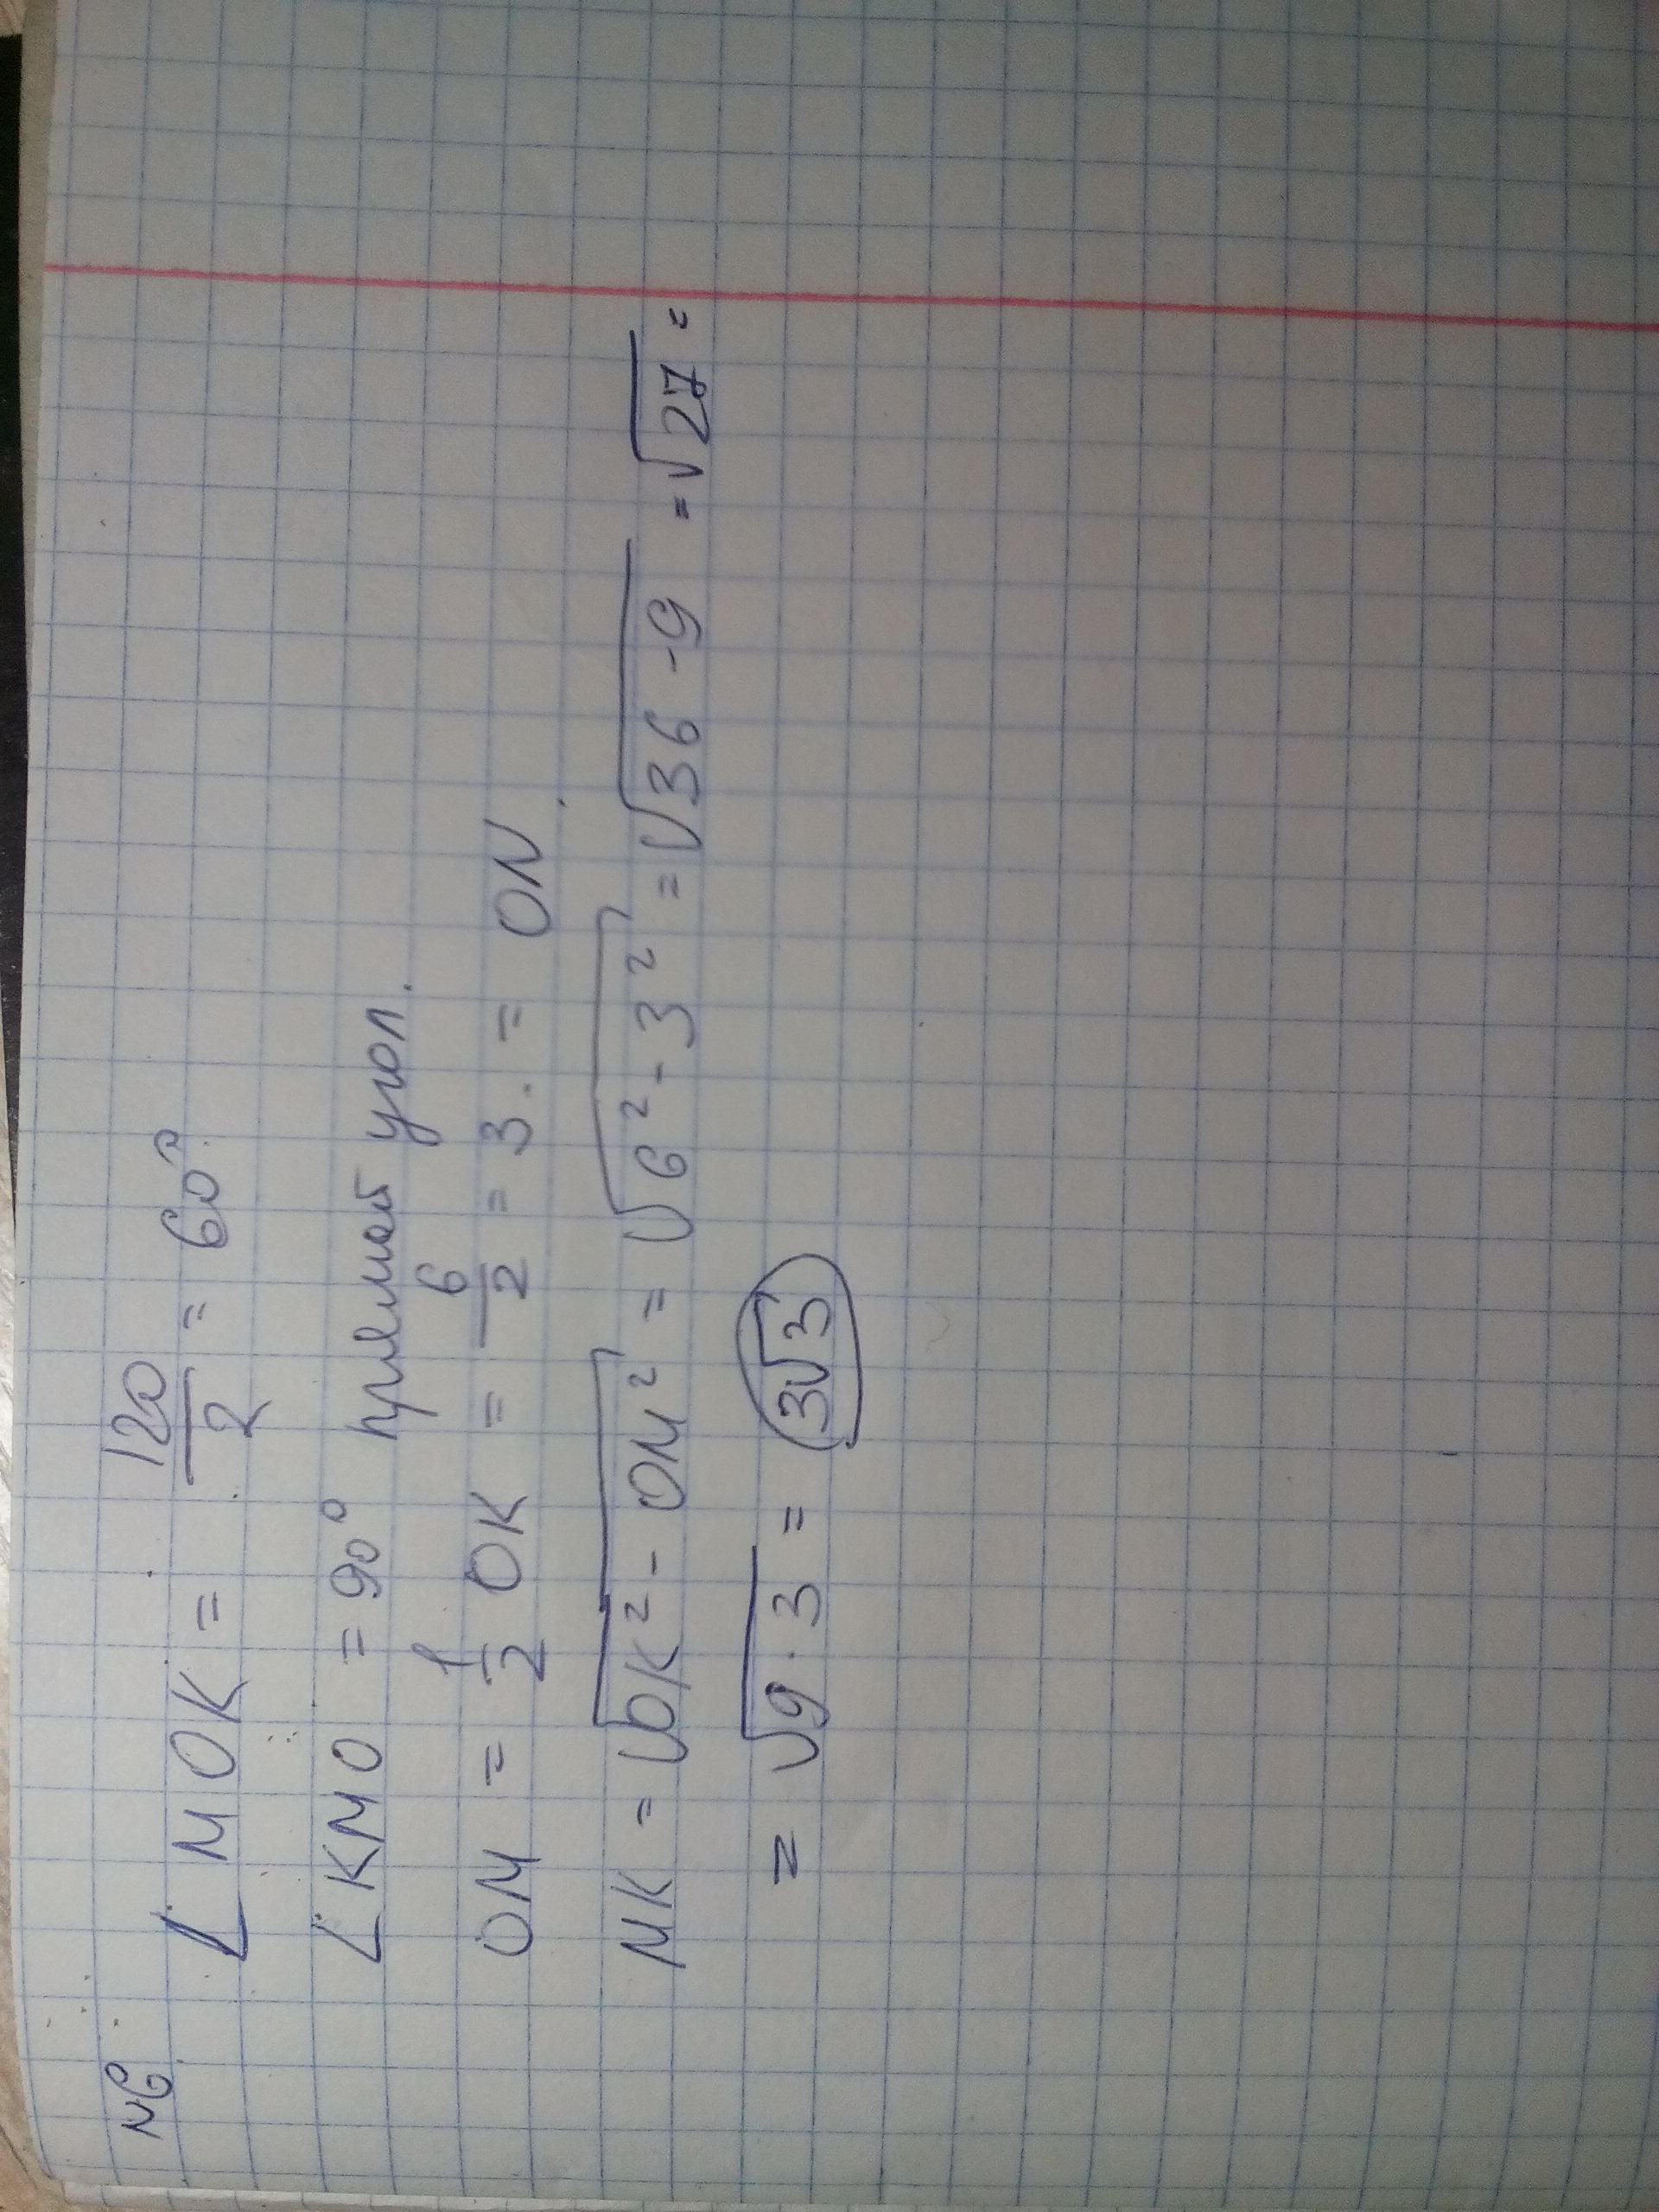 N6
∠ MOK = 120/2 = 60°.
∠ KMO = 90° прямой угол.
OM = 1/2 OK = 6/2 = 3. = ON
MK = √(OK² - OM²) = √(6² - 3²) = √(36 - 9) = √27 =
= √(9 · 3) = 3√3